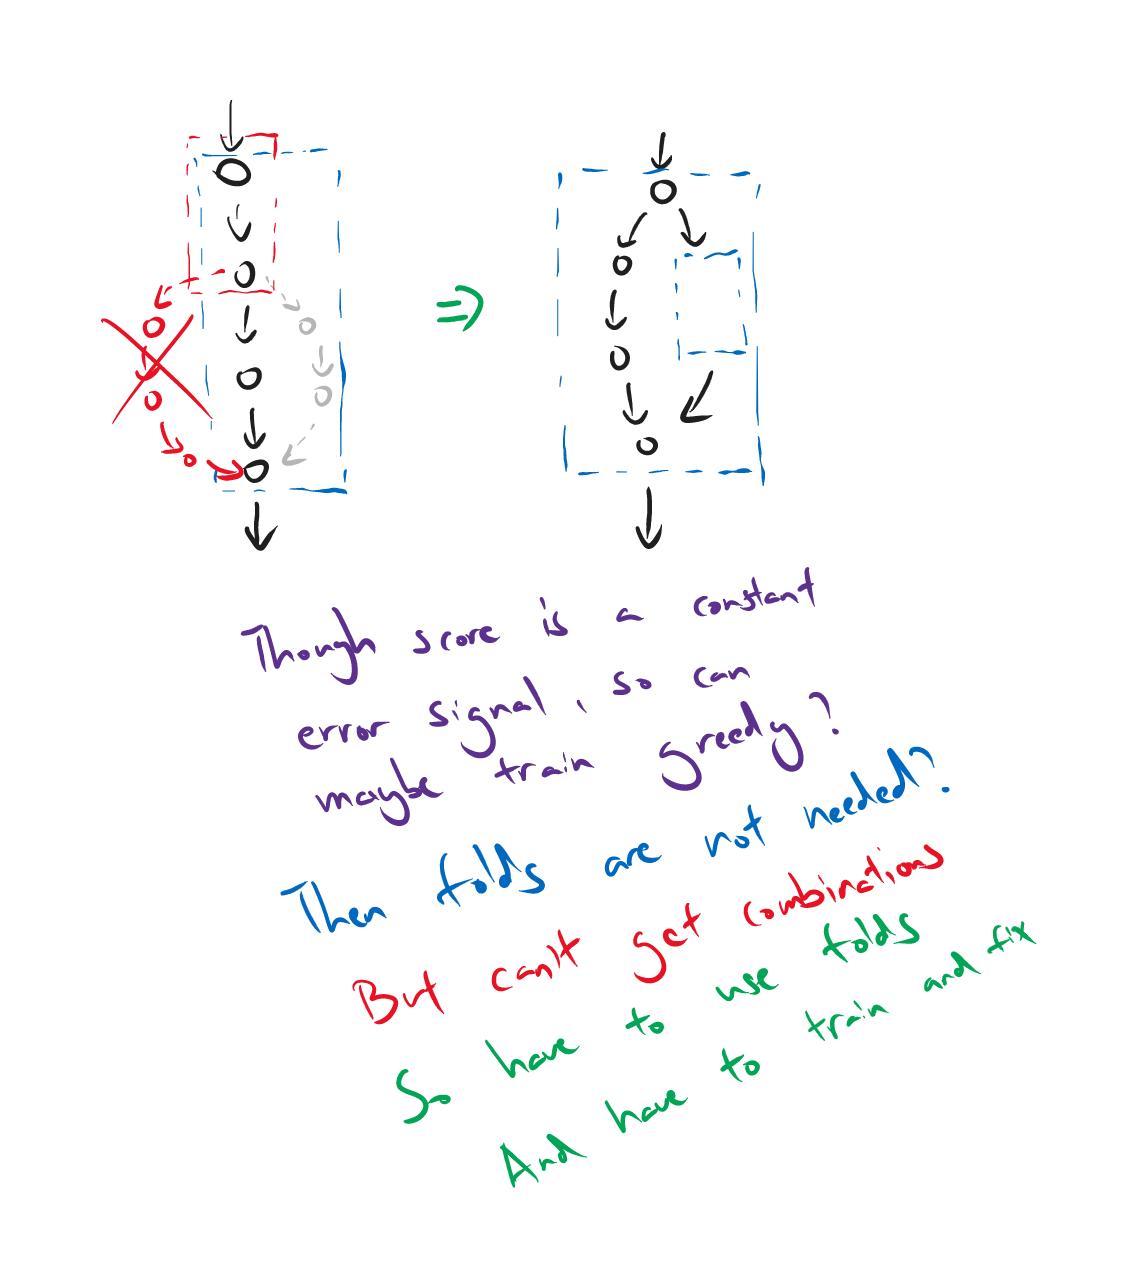 Though score is a constant
error signal, so can
maybe train greedy?
Then folds are not needed?
But can't get combinations
So have to use folds
And have to train and fix